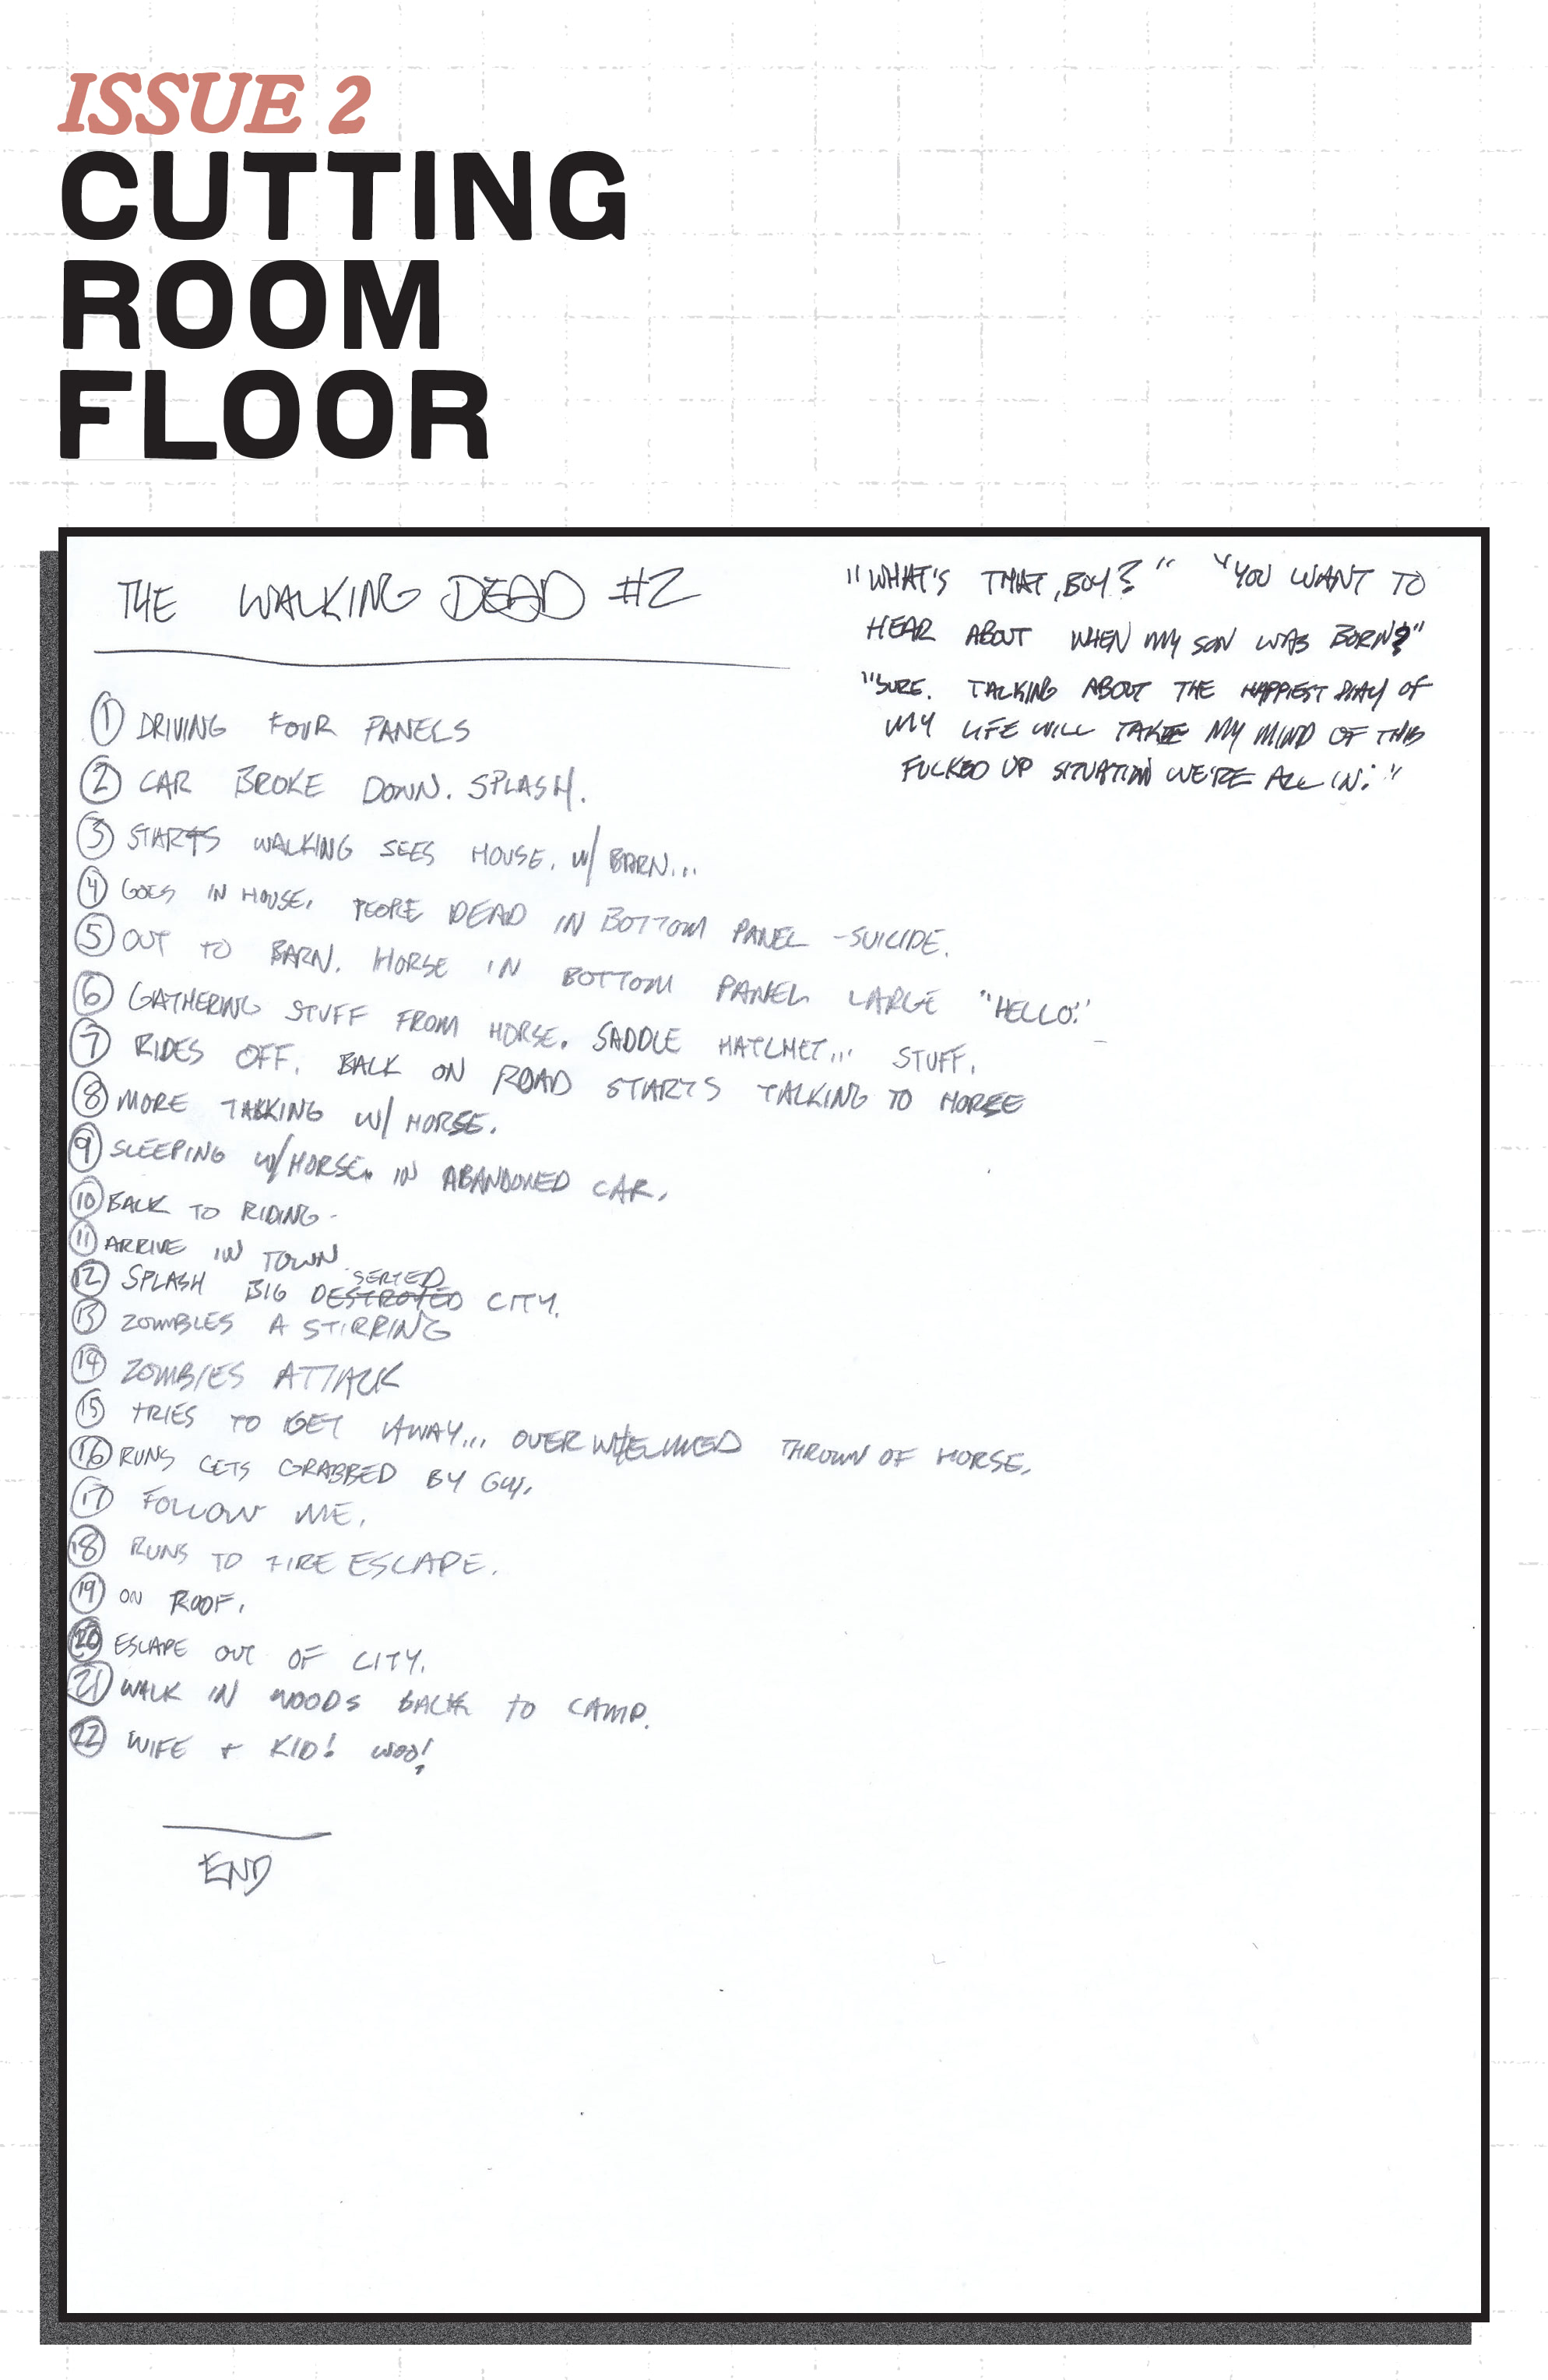 ISSUE 2
CUTTING
ROOM
FLOOR
THE WALKING DEAD #2
"WHAT'S THAT, BOY?" "YOU WANT TO
HEAR ABOUT WHEN MY SON WAS BORN?"
"SURE. TALKING ABOUT THE HAPPIEST DAY OF
MY LIFE WILL TAKE MY MIND OF THIS
FUCKED UP SITUATION WE'RE ALL IN."
1 DRIVING FOUR PANELS
2 CAR BROKE DOWN. SPLASH.
3 STARTS WALKING SEES HOUSE. W/ BARN...
4 GOES IN HOUSE. PEOPLE DEAD IN BOTTOM PANEL - SUICIDE.
5 OUT TO BARN. HORSE IN BOTTOM PANEL LARGE "HELLO."
6 GATHERING STUFF FROM HORSE. SADDLE HATLMET... STUFF.
7 RIDES OFF. BACK ON ROAD STARTS TALKING TO HORSE
8 MORE TALKING W/ HORSE.
9 SLEEPING W/HORSE. IN ABANDONED CAR.
10 BACK TO RIDING.
11 ARRIVE IN TOWN
12 SPLASH BIG DESERTED CITY.
13 ZOMBIES A STIRRING
14 ZOMBIES ATTACK
15 TRIES TO GET AWAY... OVERWHELMED THROWN OF HORSE.
16 RUNS GETS GRABBED BY GUY.
17 FOLLOW ME.
18 RUNS TO FIRE ESCAPE.
19 ON ROOF.
20 ESCAPE OUT OF CITY.
21 WALK IN WOODS BACK TO CAMP.
22 WIFE + KID! WOO!
END